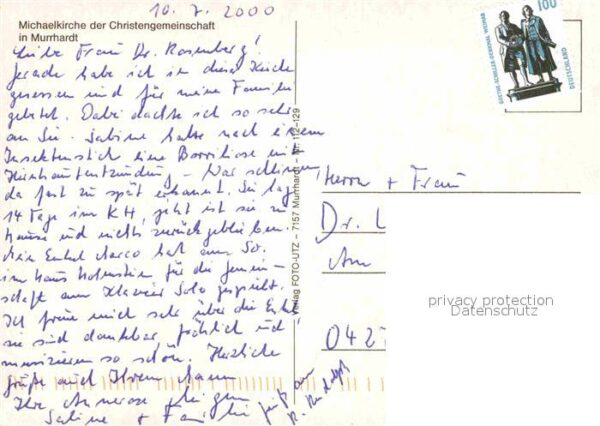 10.7.2000
Michaelkirche der Christengemeinschaft
in Murrhardt
Liebe Frau Dr. Rosenberg!
Gerade habe ich in dieser Kirche
gesessen und für meine Familie
gebetet. Dabei dachte ich so sehr
an Sie. Sabine hatte nach einem
Insektenstich eine Borreliose mit
Hirnhautentzündung - Was schlimm,
da fast zu spät erkannt. Sie lag
14 Tage im KH, jetzt ist sie zu
Hause und nichts zurückgeblieben.
Mein Enkel Marco hat am So.
im Haus Hohenstein für die Gemein-
schaft am Klavier Solo gespielt.
Ich freue mich sehr über die Enkel
sie sind dankbar, fröhlich und
musizieren so schön. Herzliche
Grüße auch Ihrem Mann
Ihre Annerose
Sabine + Familie
Verlag FOTO-UTZ – 7157 Murrhardt – Nr. 112–129
100
GOETHE-SCHILLER-DENKMAL WEIMAR
DEUTSCHLAND
Herrn + Frau
Dr. L
Am
042
privacy protection
Datenschutz